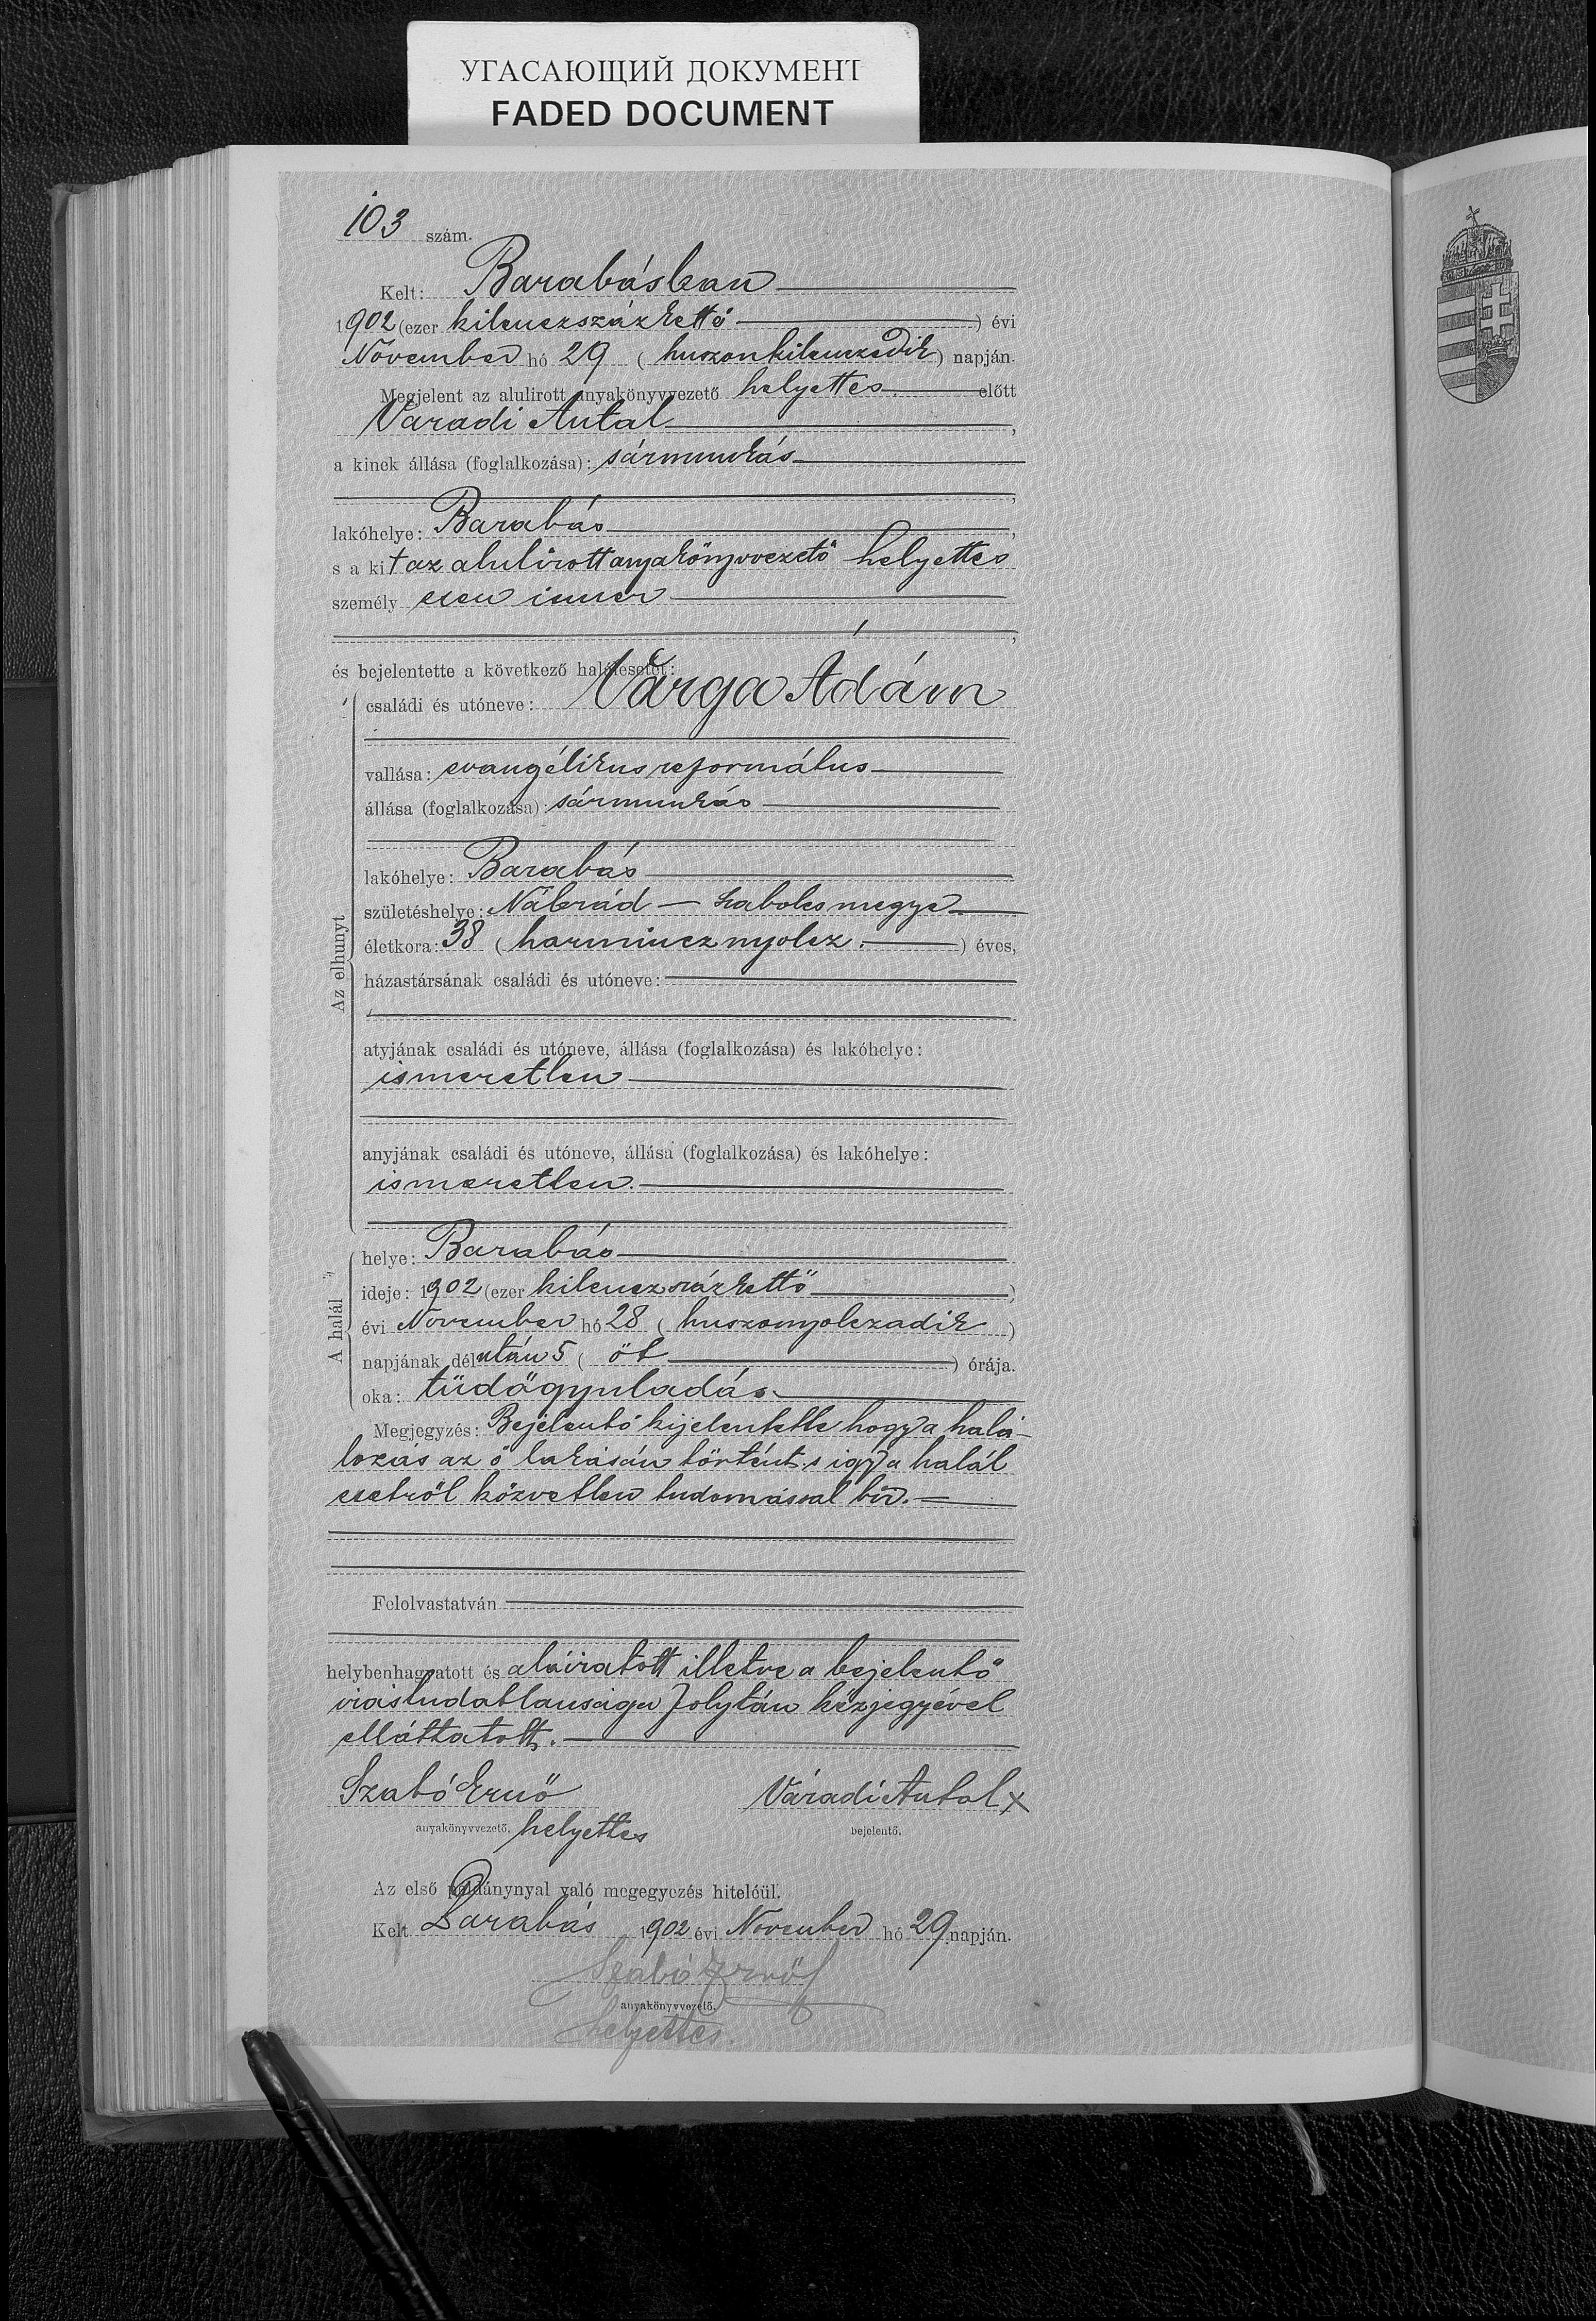 УГАСАЮЩИЙ ДОКУМЕНТ
FADED DOCUMENT
103 szám.
Kelt: Barabásban
1902 (ezer kilenczszázkettő ) évi
November hó 29 ( huszonkilenczedik ) napján.
Megjelent az alulirott anyakönyvvezető helyettes előtt
Varadi Antal,
a kinek állása (foglalkozása): sármunkás
,
lakóhelye: Barabás,
s a kit az alulirott anyakönyvvezető helyettes
személyesen ismer
,
és bejelentette a következő halálesetet:
Az elhunyt
családi és utóneve: Varga Ádám
vallása: evangélikus református
állása (foglalkozása): sármunkás
lakóhelye: Barabás
születéshelye: Nábrád — Szabolcsmegye
életkora: 38 ( harmincznyolcz. ) éves,
házastársának családi és utóneve:
atyjának családi és utóneve, állása (foglalkozása) és lakóhelye:
ismeretlen
anyjának családi és utóneve, állása (foglalkozása) és lakóhelye:
ismeretlen.
A halál
helye: Barabás
ideje: 1902 (ezer kilenczszázkettő )
évi November hó 28 ( huszonnyolczadik )
napjának délután 5 ( öt ) órája.
oka: tüdőgyuladás.
Megjegyzés: Bejelentő kijelentette hogy a halá-
lozás az ő lakásán történt s igy a halál
esetről közvetlen tudomással bir. —
Felolvastatván
helybenhagyatott és aláiratott illetve a bejelentő
irástudatlansága folytán kézjegyével
elláttatott.
Szabó Ernő Váradi Antal x
anyakönyvvezető. helyettes bejelentő.
Az első példánynyal való megegyezés hiteléül.
Kelt Barabás 1902 évi November hó 29 napján.
Szabó Ernő
anyakönyvvezető.
helyettes.